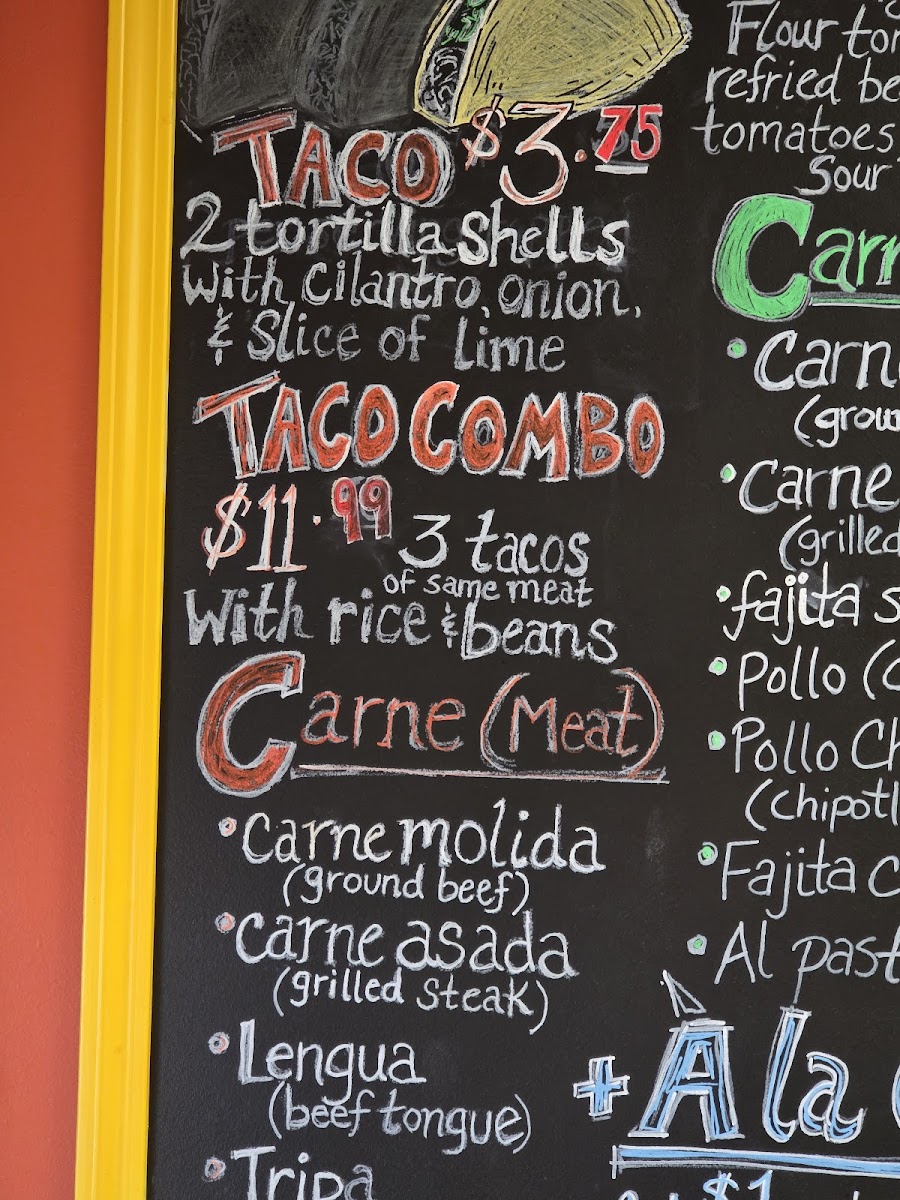 TACO $3.75
2 tortilla shells
with cilantro, onion,
& Slice of lime
TACO COMBO
$11.99 3 tacos
of same meat
With rice & beans
Carne (Meat)
• Carne molida
(ground beef)
• Carne asada
(grilled steak)
• Lengua
(beef tongue)
• Tripa
Flour
refried
tomatoes
Sour
• Carne
(grilled
• fajita
• Pollo
• Pollo
• Fajita
• Al
+ À la